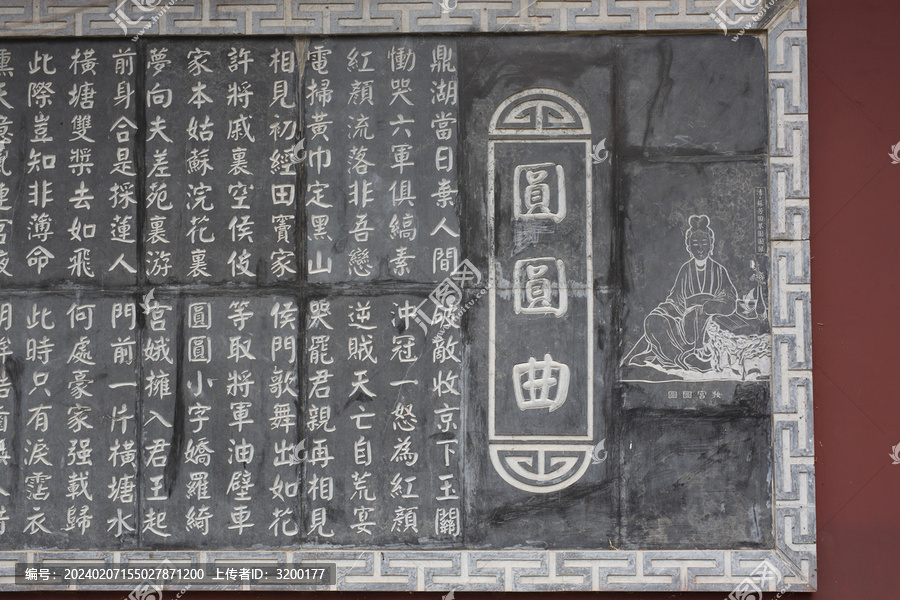 圓圓曲
鼎湖當日棄人間 破敵收京下玉關
慟哭六軍俱縞素 沖冠一怒為紅顏
紅顏流落非吾戀 逆賊天亡自荒宴
電掃黃巾定黑山 哭罷君親再相見
相見初經田竇家 侯門歌舞出如花
許將戚裏空侯伎 等取將軍油壁車
家本姑蘇浣花裏 圓圓小字嬌羅綺
夢向夫差苑裏遊 宮娥擁入君王起
前身合是採蓮人 門前一片橫塘水
橫塘雙槳去如飛 何處豪家強載歸
此際豈知非薄命 此時只有淚霑衣
编号：20240207155027871200 上传者ID：3200177